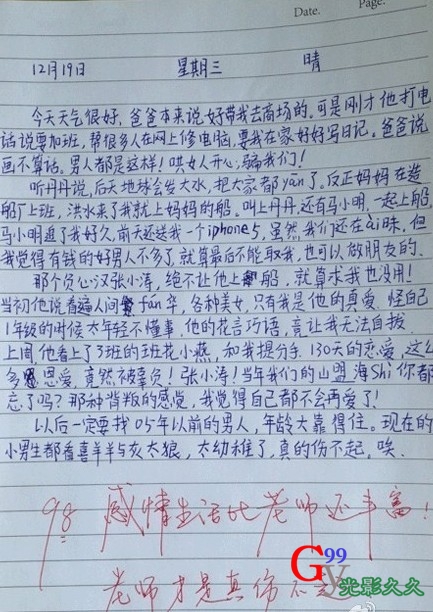 Date.
Page.
12月19日 星期三 晴
今天天气很好,爸爸本来说好带我去商场的。可是刚才他打电
话说要加班,帮很多人在网上修电脑,要我在家好好写日记。爸爸说
画不算话。男人都是这样!哄女人开心,骗我们!
听丹丹说,后天地球会发大水,把大家都yān了。反正妈妈在造
船厂上班,洪水来了我就上妈妈的船。叫上丹丹,还有马小明,一起上船。
马小明追了我好久,前天还送我一个iphone5,虽然我们还在ài昧,但
我觉得有钱的好男人不多了,就算最后不能取我,也可以做朋友的。
那个负心汉张小涛,绝不让他上船,就算求我也没用!
当初他说看遍人间fán华,各种美女,只有我是他的真爱,怪自己
1年级的时候太年轻不懂事,他的花言巧语,竟让我无法自拔。
上周他看上了3班的班花小燕,和我提分手,130天的恋爱,这么
多恩爱,竟然被辜负!张小涛!当年我们的山盟海Shi你都
忘了吗?那种背叛的感觉,我觉得自己都不会再爱了!
以后一定要找05年以前的男人,年龄大靠得住。现在的
小男生都看喜羊羊与灰太狼,太幼稚了,真的伤不起,唉。
98 感情生活比老师还丰富!
老师才是真伤不
G99
y
光影久久